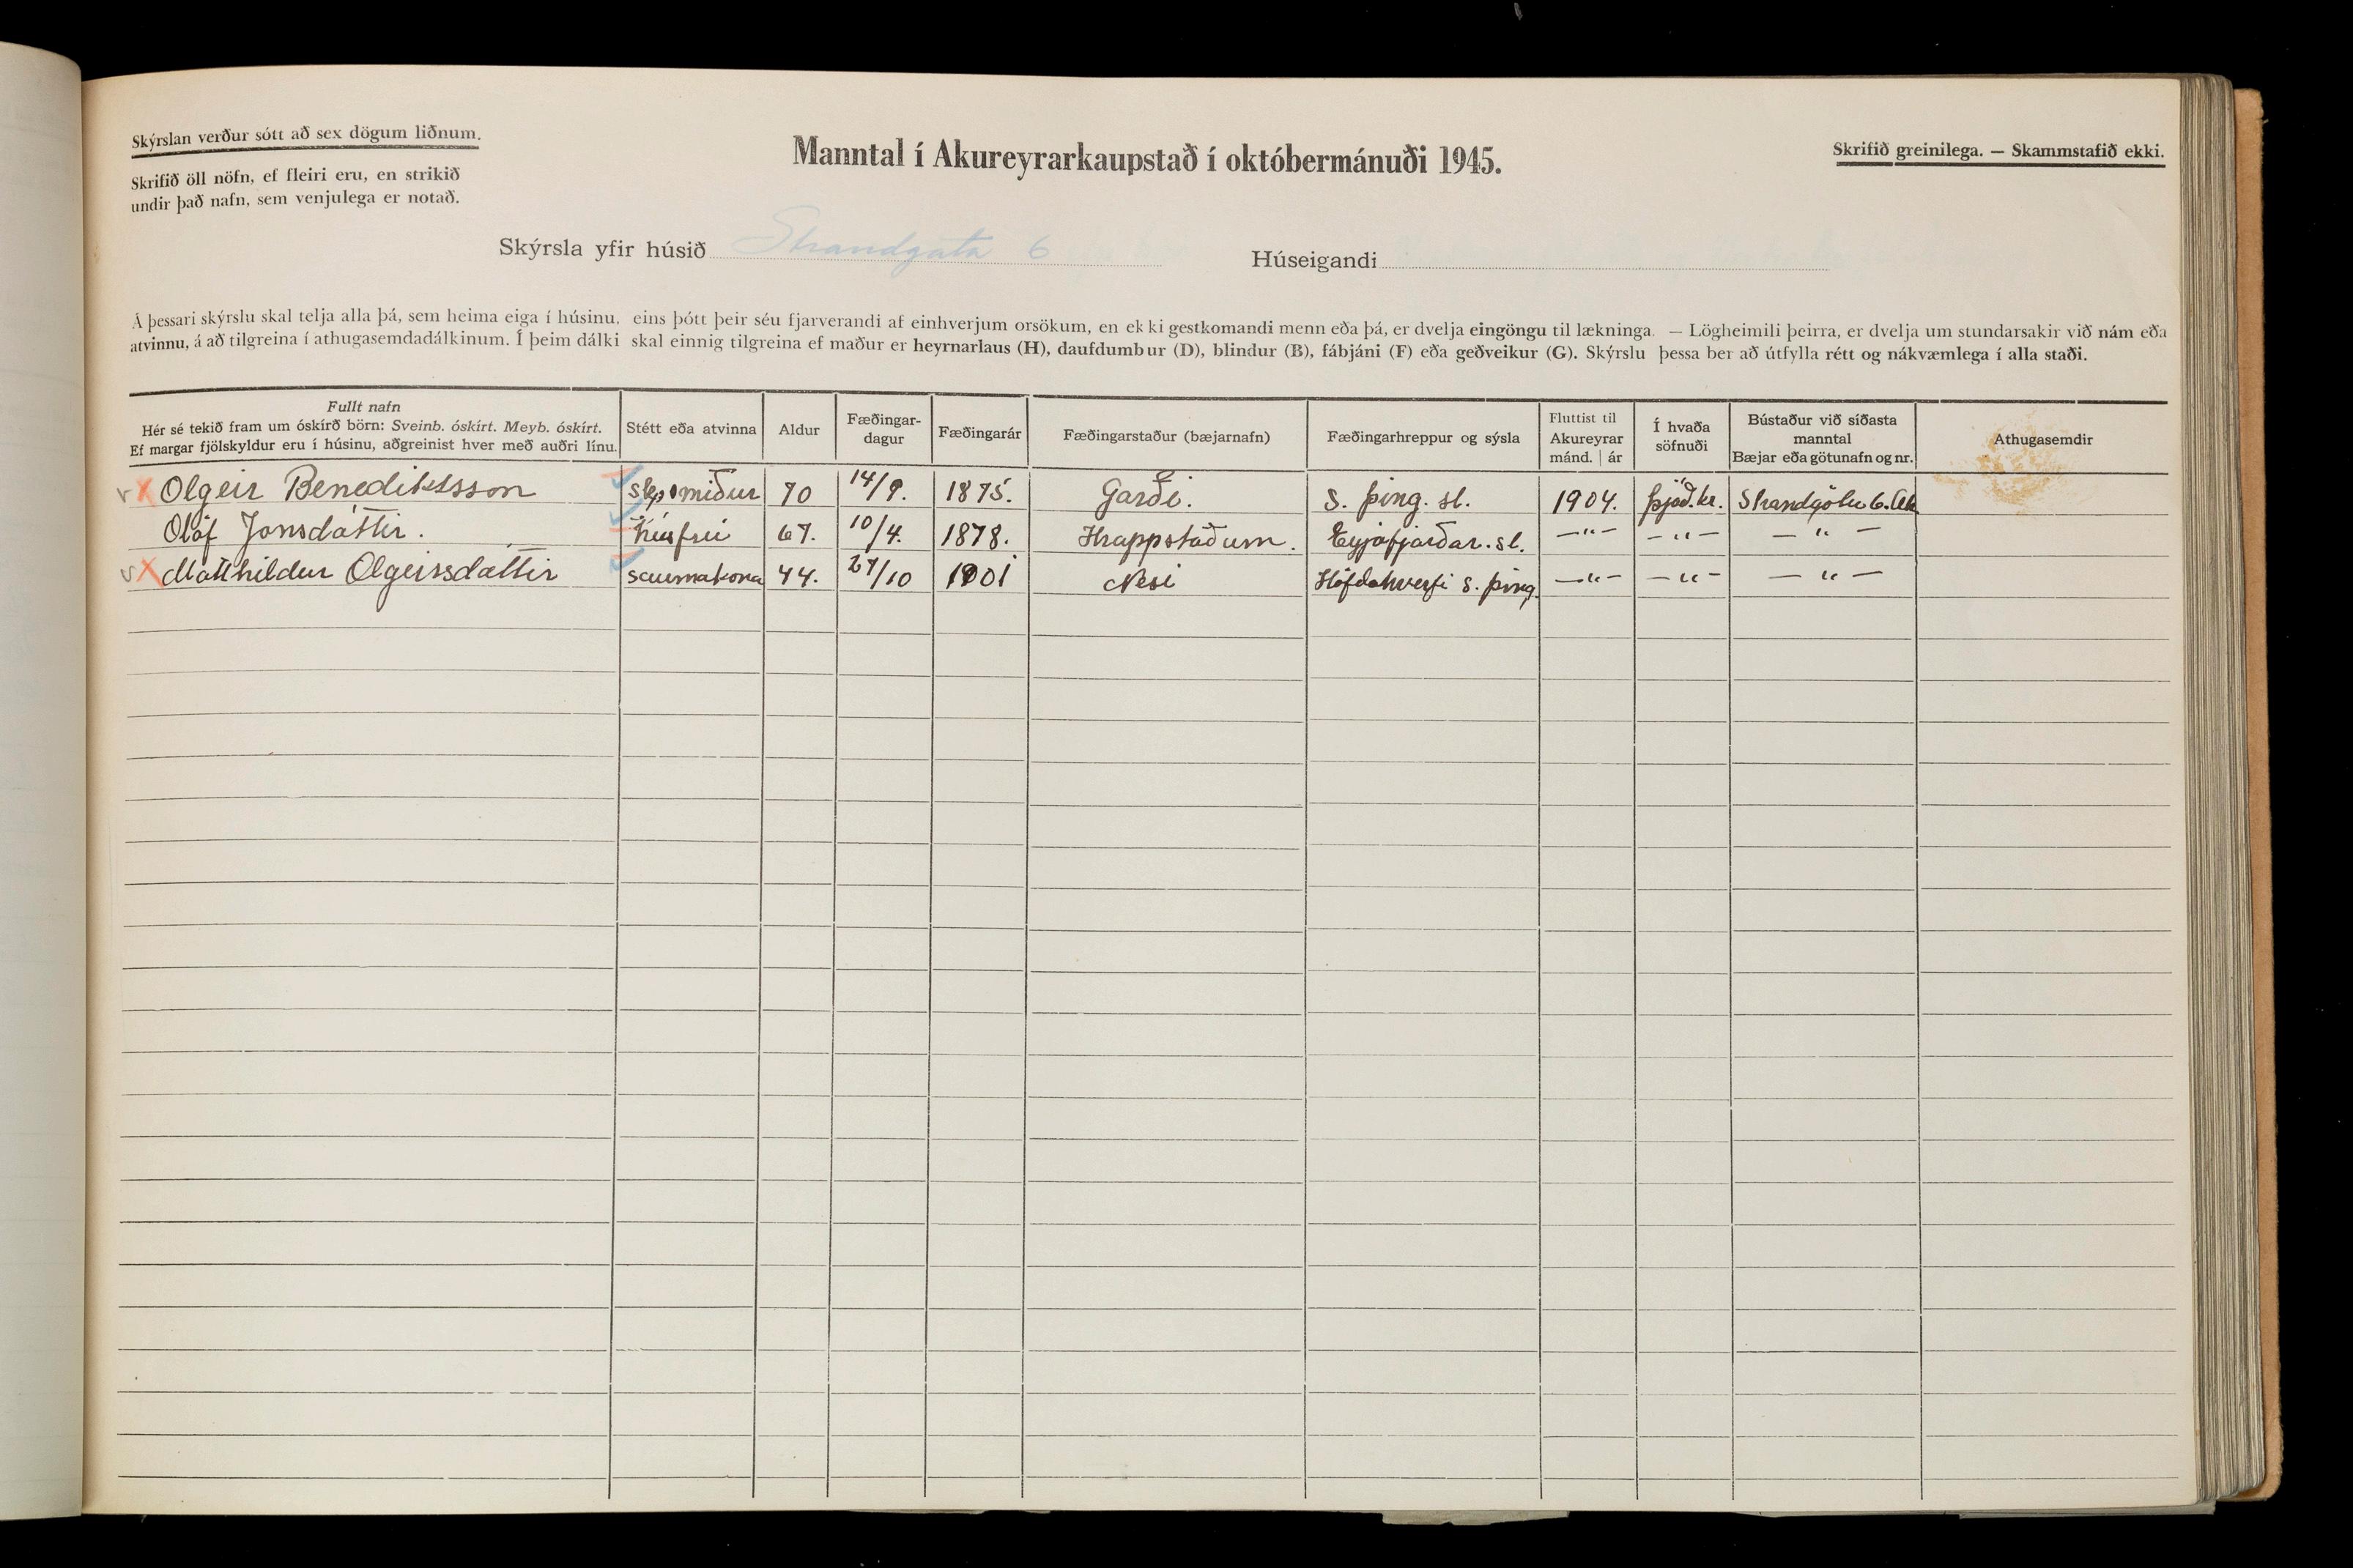 Skýrslan verður sótt að sex dögum liðnum.
Skrifið öll nöfn, ef fleiri eru, en strikið
undir það nafn, sem venjulega er notað.
Manntal í Akureyrarkaupstað í októbermánuði 1945.
Skrifið greinilega. — Skammstafið ekki.
Skýrsla yfir húsið Strandgata 6 Húseigandi
Á þessari skýrslu skal telja alla þá, sem heima eiga í húsinu, eins þótt þeir séu fjarverandi af einhverjum orsökum, en ekki gestkomandi menn eða þá, er dvelja eingöngu til lækninga. — Lögheimili þeirra, er dvelja um stundarsakir við nám eða
atvinnu, á að tilgreina í athugasemdadálkinum. Í þeim dálki skal einnig tilgreina ef maður er heyrnarlaus (H), daufdumbur (D), blindur (B), fábjáni (F) eða geðveikur (G). Skýrslu þessa ber að útfylla rétt og nákvæmlega í alla staði.
Fullt nafn
Hér sé tekið fram um óskírð börn: Sveinb. óskírt. Meyb. óskírt.
Ef margar fjölskyldur eru í húsinu, aðgreinist hver með auðri línu.
Stétt eða atvinna
Aldur
Fæðingar-
dagur
Fæðingarár
Fæðingarstaður (bæjarnafn)
Fæðingarhreppur og sýsla
Fluttist til
Akureyrar
mánd. | ár
Í hvaða
söfnuði
Bústaður við síðasta
manntal
Bæjar eða götunafn og nr.
Athugasemdir
v X Olgeir Benediktsson miður 70 14/9. 1875. Garði. S. þing. sl. 1904. þjóð.kr. Strandgötu 6. Ak
Ólöf Jónsdóttir. húsfrú 67. 10/4. 1878. Hrappstöðum. Eyjafjarðar. sl. —"— —"— —"—
v X Matthildur Olgeirsdóttir saumakona 44. 27/10 1901 Nesi Höfðahverfi S. þing. —"— —"— —"—